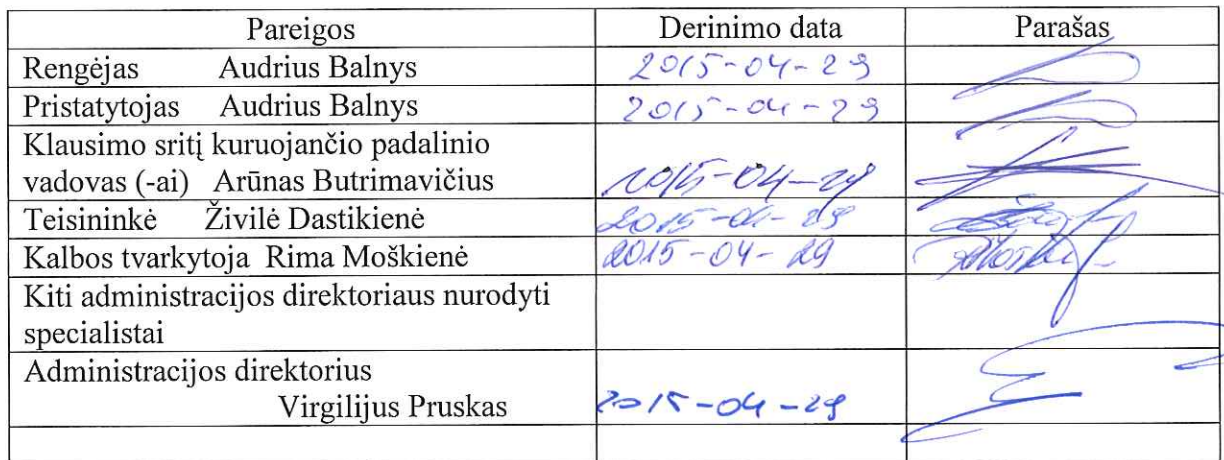 Pareigos Derinimo data Parašas
Rengėjas Audrius Balnys 2015-04-29
Pristatytojas Audrius Balnys 2015-04-29
Klausimo sritį kuruojančio padalinio
vadovas (-ai) Arūnas Butrimavičius 2015-04-29
Teisininkė Živilė Dastikienė 2015-04-29
Kalbos tvarkytoja Rima Moškienė 2015-04-29
Kiti administracijos direktoriaus nurodyti
specialistai
Administracijos direktorius
Virgilijus Pruskas 2015-04-29